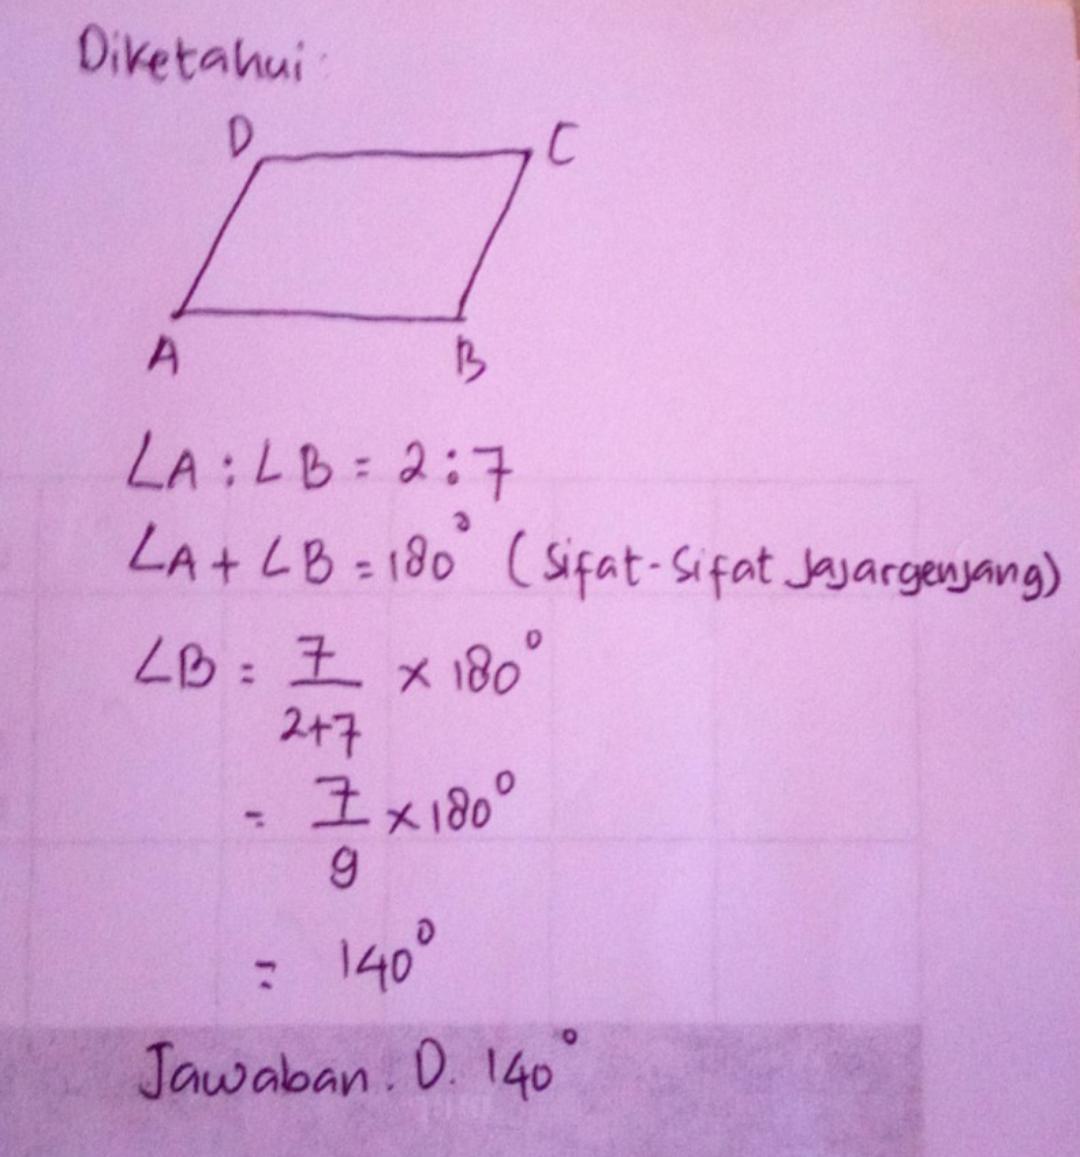 Diketahui:
D C
A B
∠A : ∠B = 2 : 7
∠A + ∠B = 180° (Sifat-Sifat Jajargenjang)
∠B = 7/2+7 × 180°
= 7/9 × 180°
= 140°
Jawaban: D. 140°